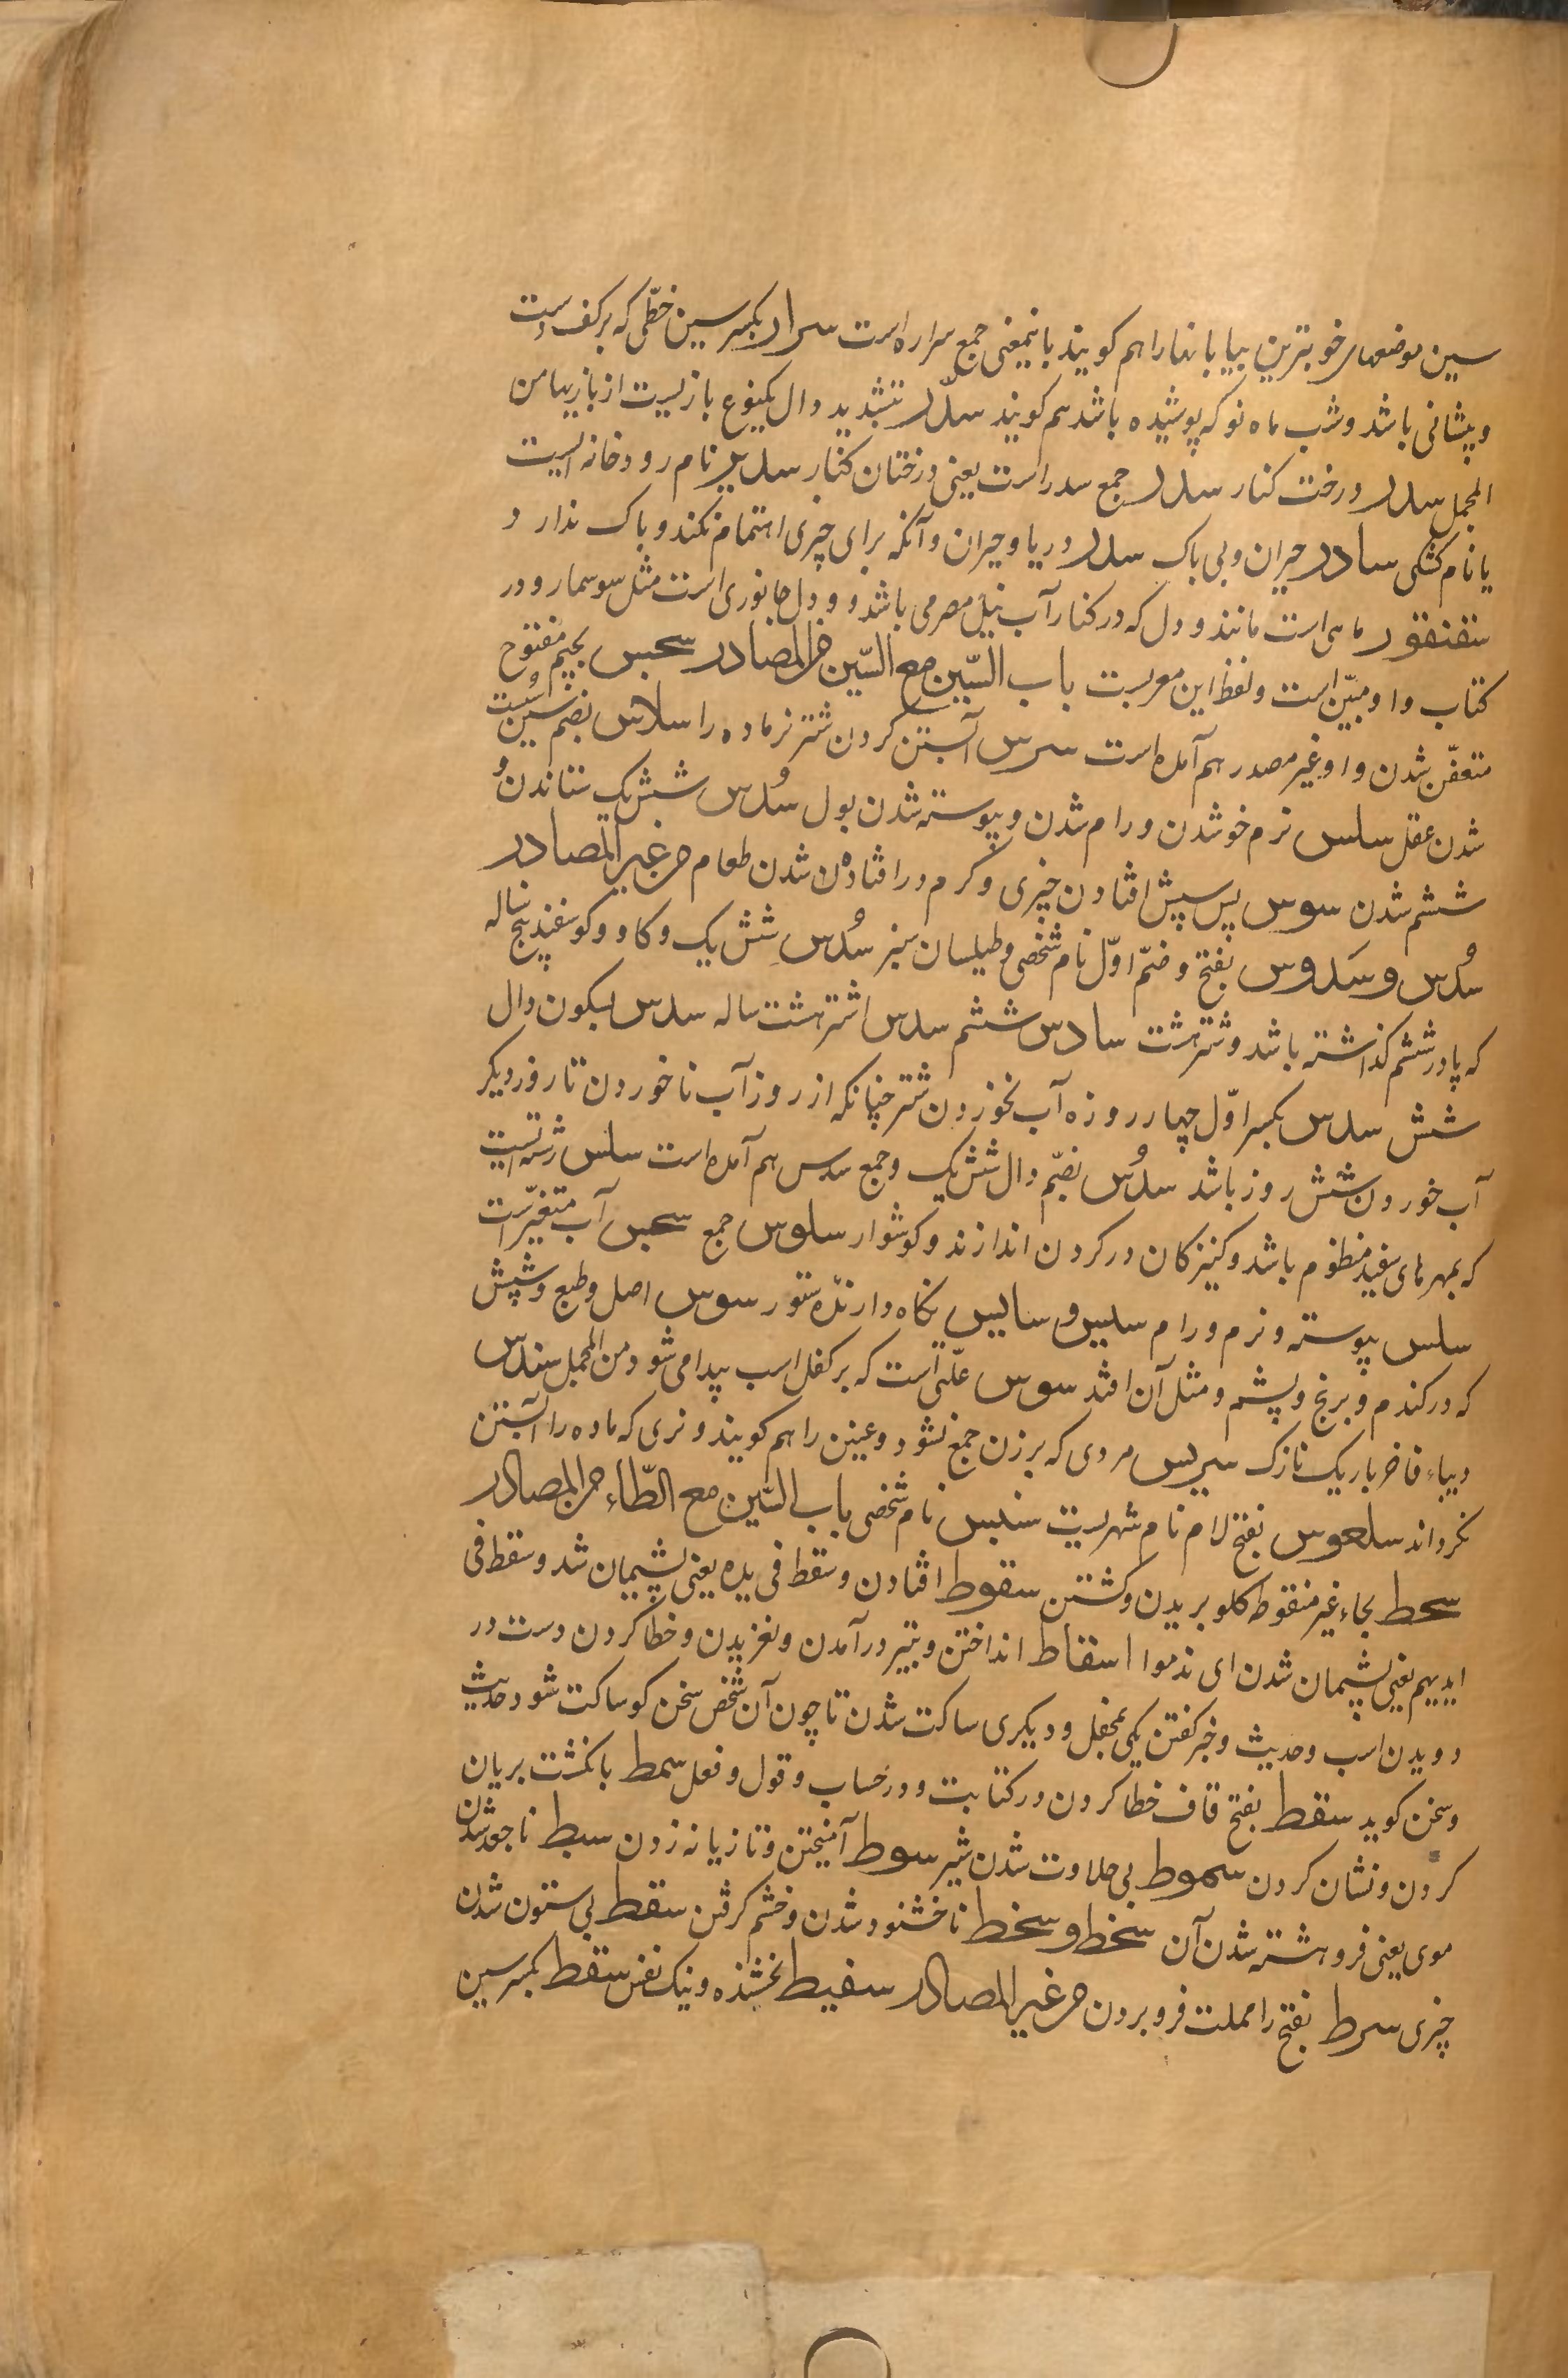 سین موضعهای خوبترین بیابانها را هم کویند باینمعنی جمع سراره است سرار بکسر سین خطّی که بر کف دست
و پیشانی باشد و شب ماه نو که پوشیده باشد هم کویند سدّر بتشدید دال یکنوع بازیست از بازیها من
المجمل سدر درخت کنار سدر جمع سدر است یعنی درختان کنار سدیر نام رودخانه ایست
یا نام کشکی سادر حیران و بی باک سدر دریا و حیران و آنکه برای چیزی اهتمام نکند و باک ندارد
سقنقور ماهی است مانند ودل که در کنار آب نیل مصر می باشد و ودل جانوری است مثل سوسمار و در
کتاب واو مبیّن است و لفظ این معربست باب السّین مع السّین من المصادر سجس بجیم مفتوح
متعفّن شدن واو غیر مصدر هم آمده است سرس آبستن کردن شتر نر ماده را سلاس بضم سین سست
شدن عقل سلس نرم خو شدن و رام شدن و پیوسته شدن بول سُدس شش یک ستاندن و
ششم شدن سوس پس سپش افتادن چیزی و کرم در افتاده‌ن شدن طعام من غیر المصادر
سُدس و سَدوس بفتح و ضمّ اوّل نام شخصی و طیلسان سبز سُدس شش یک و کاو و کوسفند پنج ساله
که پا در ششم کذاشته باشد و شتر هشت سادس ششم سدس اشتر هشت ساله سدس بسکون دال
شش سدس بکسر اوّل چهار روزه آب نخوردن شتر چنانکه از روز آب ناخوردن تا روز دیکر
آب خوردن شش روز باشد سدُس بضمّ دال شش یک و جمع سدس هم آمده است سلس رشته ایست
که بمهرهای سفید منظوم باشد و کنیزکان در کردن اندازند و کوشوار سلوس جمع سجس آب متغیّر است
سلس پیوسته و نرم و رام سلیس و سایس نکاه دارندۀ ستور سوس اصل و طبع و شپش
که در کندم و برنج و پشم و مثل آن افتد سوس علّتی است که بر کفل اسب پیدا می شود من المجمل سندس
دیباء فاخر باریک نازک سریس مردی که بر زن جمع نشود و عینین را هم کویند و نری که ماده را آبستن
نکرداند سلعوس بفتح لام نام شهریست سنبس نام شخصی باب السّین مع الطّاء من المصادر
سحط بحاء غیر منقوطه کلو بریدن و کشتن سقوط افتادن و سقط فی یده یعنی پشیمان شد و سقط فی
ایدیهم یعنی پشیمان شدن ای ندموا اسقاط انداختن و بتیر در آمدن و لغزیدن و خطا کردن دست در
دویدن اسب و حدیث و خبر کفتن یکی بمحفل و دیکری ساکت شدن تا چون آن شخص سخن کو ساکت شود حدیث
و سخن کوید سقط بفتح قاف خطا کردن در کتابت و در حساب و قول و فعل سمط بانکشت بریان
کردن و نشان کردن سموط بی حلاوت شدن شیر سوط آمیختن و تازیانه زدن سبط ناجعد شدن
موی یعنی فروهشته شدن آن سخط و سخط ناخشنود شدن و خشم کرفتن سقط بی ستون شدن
چیزی سرط بفتح را مهملت فرو بردن من غیر المصادر سفیط بخشنده و نیک نفس سقط بکسر سین